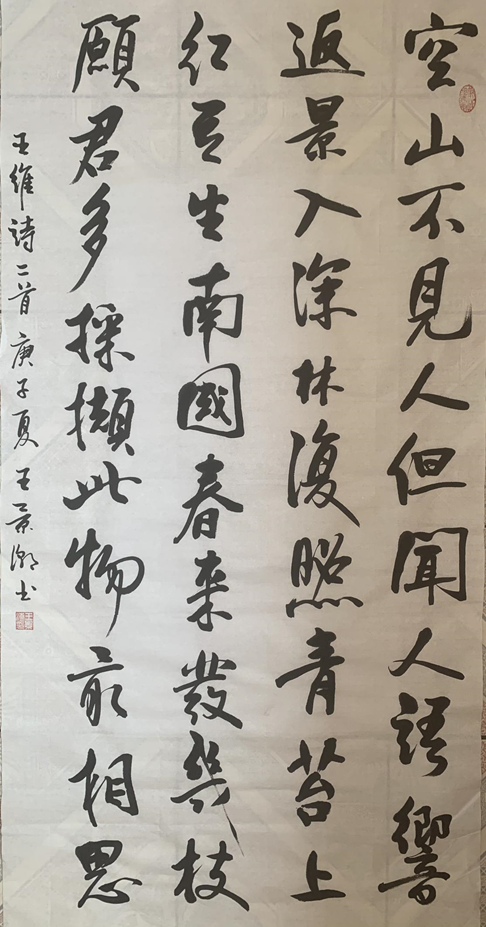 空山不見人但聞人語響
返景入深林復照青苔上
紅豆生南國春來發幾枝
願君多採擷此物最相思
王維詩二首庚子夏王景澍书